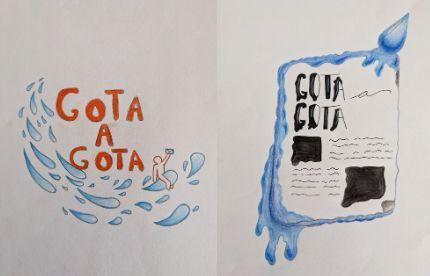 GOTA
A
GOTA
GOTA a
GOTA